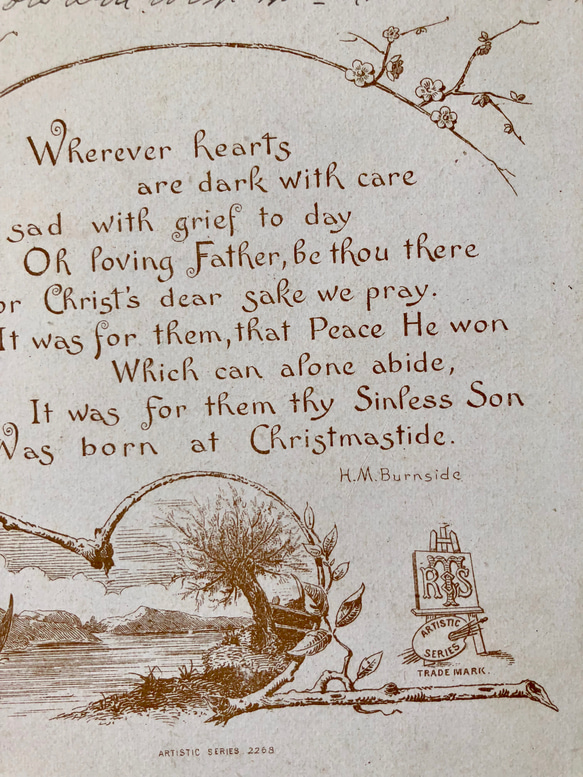 Wherever hearts
are dark with care
sad with grief to day
Oh loving Father, be thou there
or Christ's dear sake we pray.
It was for them, that Peace He won
Which can alone abide,
It was for them thy Sinless Son
Was born at Christmastide.
H.M. Burnside
RTS
ARTISTIC
SERIES
TRADE MARK.
ARTISTIC SERIES 2268